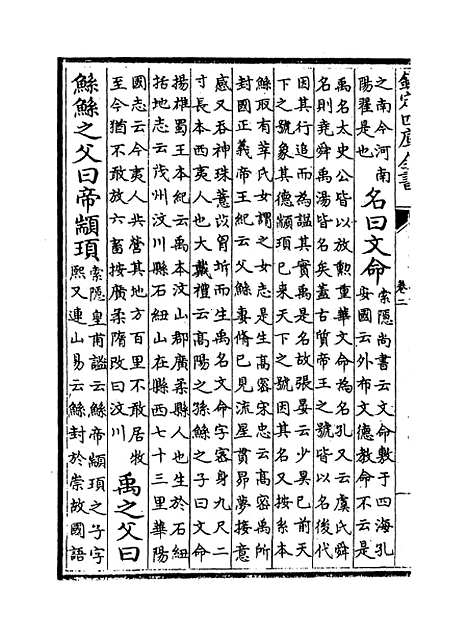 欽定四庫全書
卷二
之南今河南
陽翟是也
名曰文命
索隱尚書云文命敷于四海孔
安國云外布文德教命不云是
禹名太史公皆以放勲重華文命為名孔又云虞氏舜
名則堯舜禹湯皆名矣蓋古質帝王之號皆以名後代
因其行追而為諡其實禹是名故張晏云少昊已前天
下之號象其德顓頊已来天下之號因其名又按系本
鯀取有莘氏女謂之女志是生高密宋忠云高密禹所
封國正義帝王紀云父鯀妻脩已見流星貫昴夢接意
感又吞神珠薏苡胷坼而生禹名文命字密身九尺二
寸長本西夷人也大戴禮云高陽之孫鯀之子曰文命
揚雄蜀王本紀云禹本汶山郡廣柔縣人也生於石紐
括地志云茂州汶川縣石紐山在縣西七十三里華陽
國志云今夷人共營其地方百里不敢居牧
至今猶不敢放六畜按廣柔隋改曰汶川
禹之父曰
鯀鯀之父曰帝顓頊
索隱皇甫謐云鯀帝顓頊之子字
熙又連山易云鯀封於崇故國語